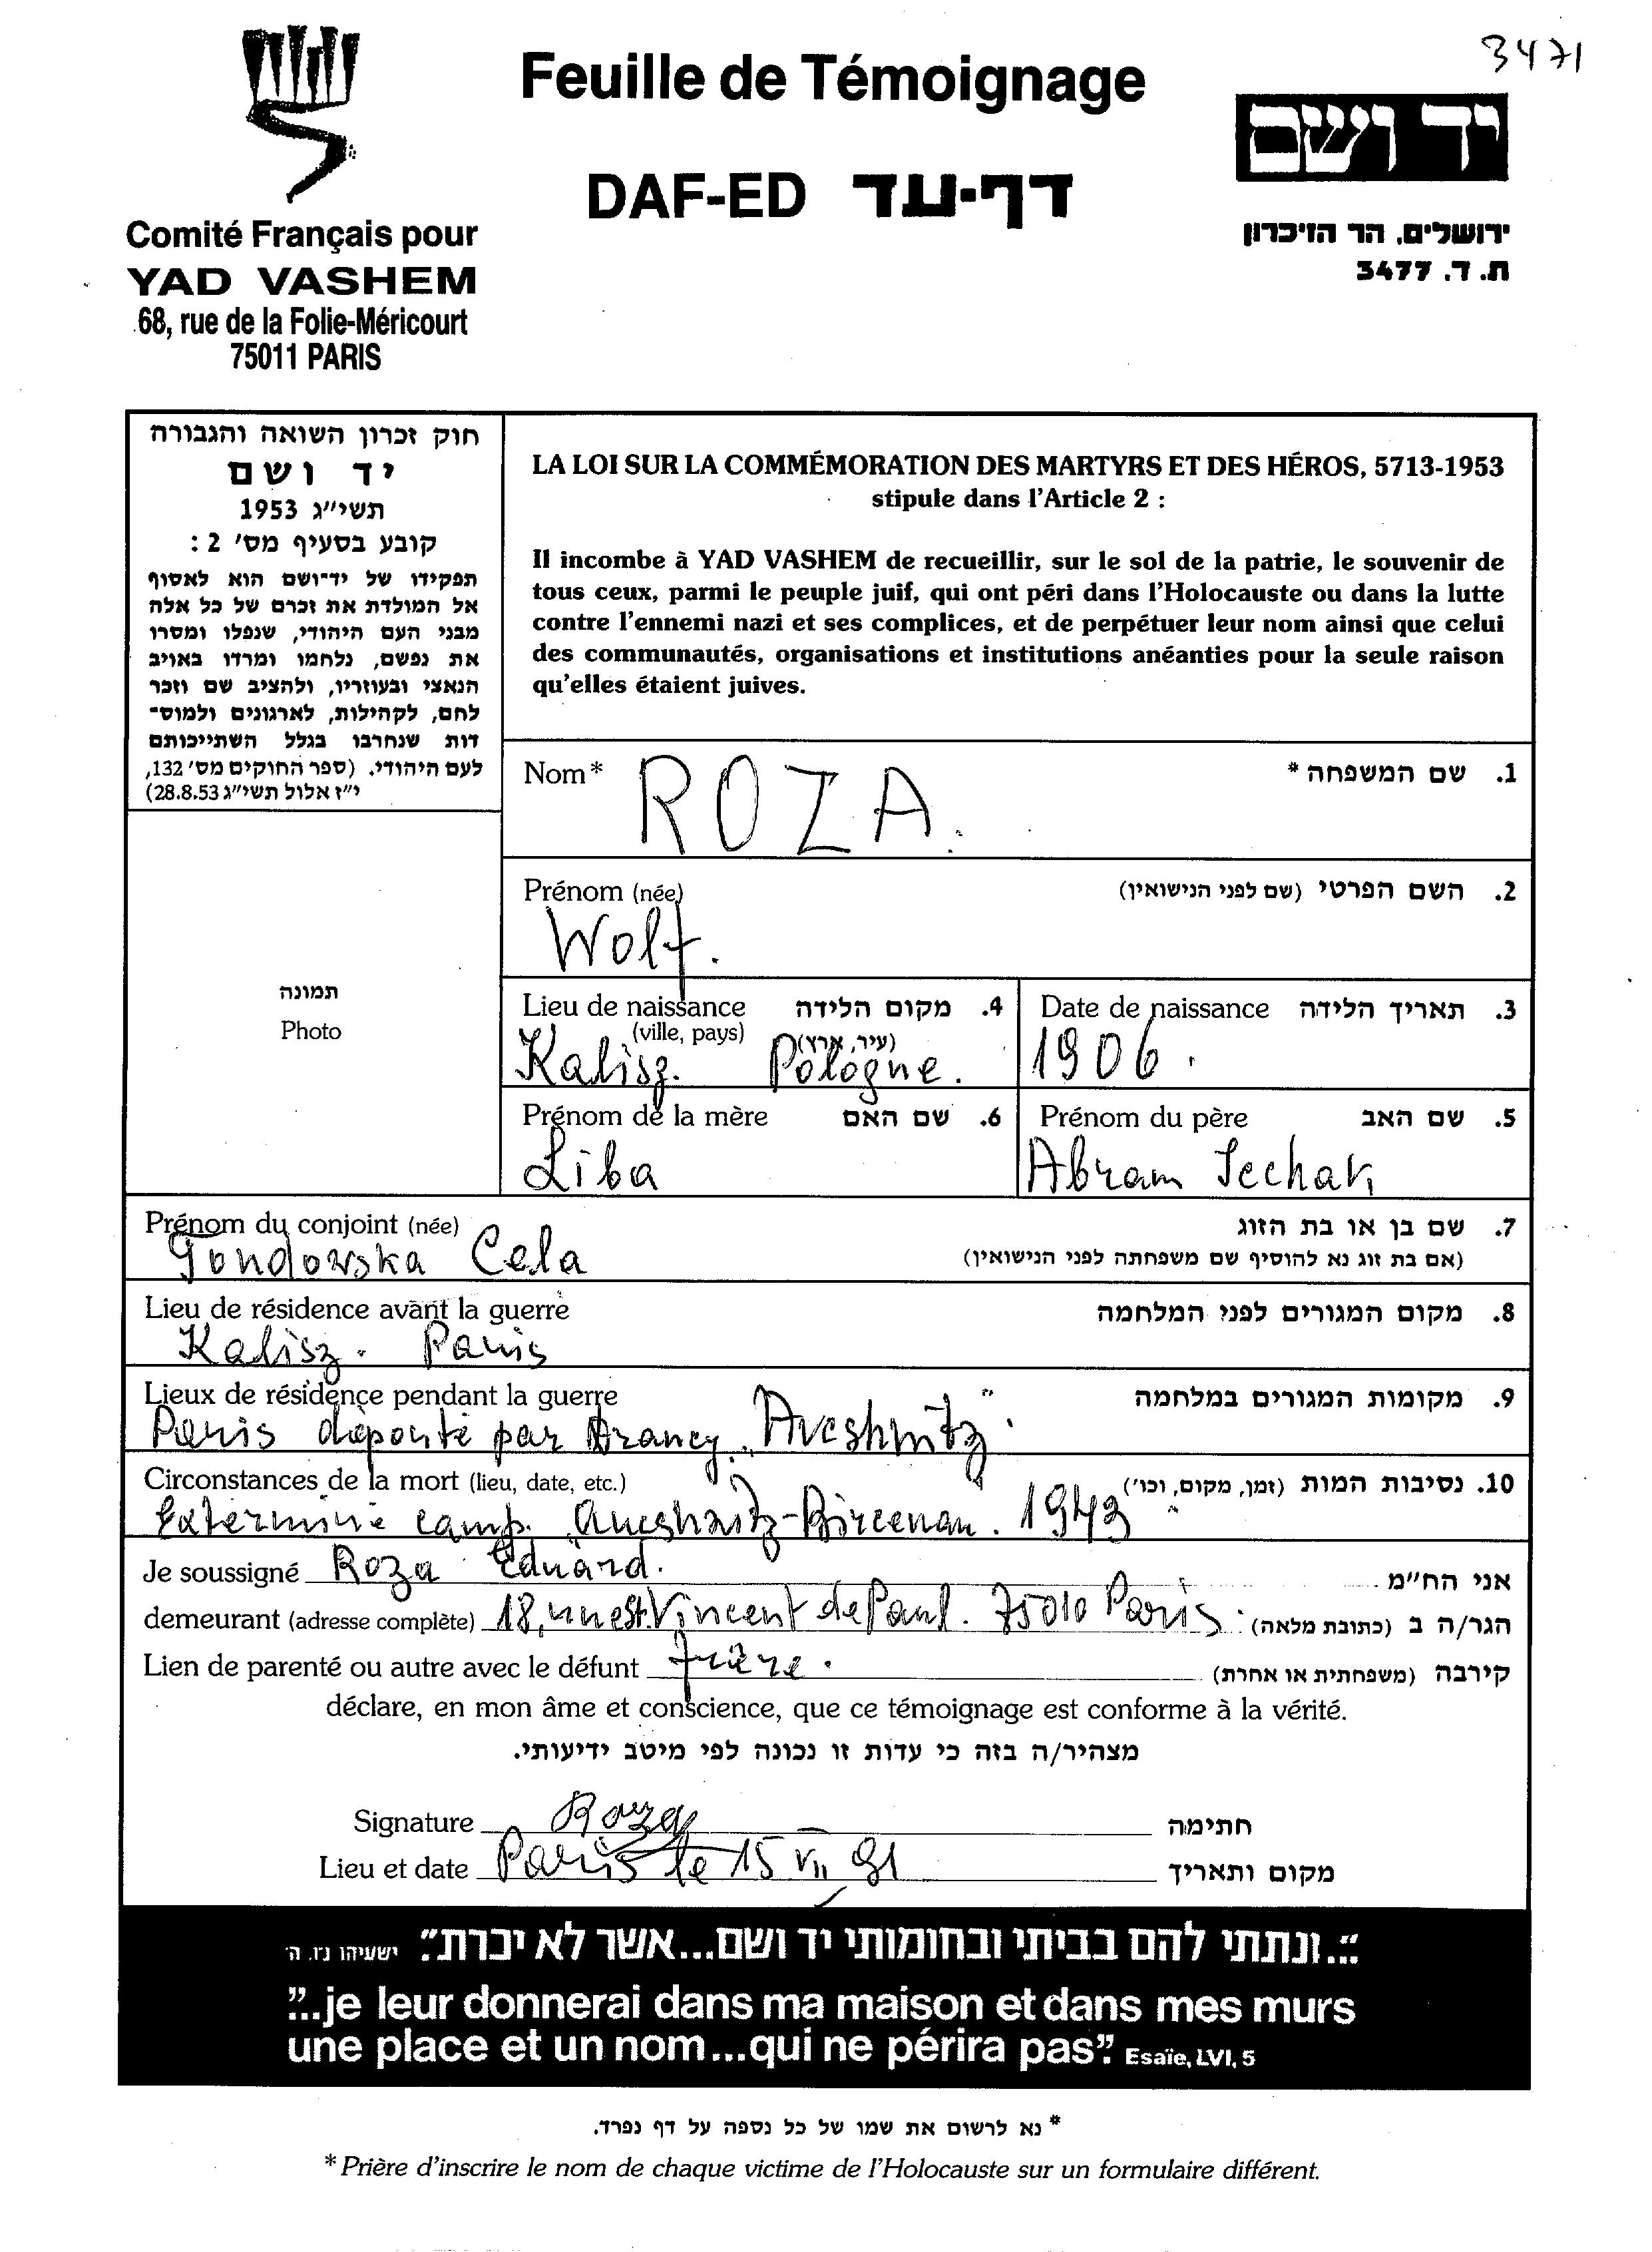 3471
Feuille de Témoignage
DAF-ED דף-עד
Comité Français pour
YAD VASHEM
68, rue de la Folie-Méricourt
75011 PARIS
יד ושם
ירושלים, הר הזיכרון
ת.ד. 3477
חוק זכרון השואה והגבורה
יד ושם
תשי״ג 1953
קובע בסעיף מס׳ 2 :
תפקידו של יד־ושם הוא לאסוף
אל המולדת את זכרם של כל אלה
מבני העם היהודי, שנפלו ומסרו
את נפשם, נלחמו ומרדו באויב
הנאצי ובעוזריו, ולהציב שם וזכר
להם, לקהילות, לארגונים ולמוס־
דות שנחרבו בגלל השתייכותם
לעם היהודי. (ספר החוקים מס׳ 132,
י״ז אלול תשי״ג 28.8.53)
תמונה
Photo
LA LOI SUR LA COMMÉMORATION DES MARTYRS ET DES HÉROS, 5713-1953
stipule dans l'Article 2 :
Il incombe à YAD VASHEM de recueillir, sur le sol de la patrie, le souvenir de
tous ceux, parmi le peuple juif, qui ont péri dans l'Holocauste ou dans la lutte
contre l'ennemi nazi et ses complices, et de perpétuer leur nom ainsi que celui
des communautés, organisations et institutions anéanties pour la seule raison
qu'elles étaient juives.
Nom* ROZA. 1. שם המשפחה *
Prénom (née) 2. השם הפרטי (שם לפני הנישואין)
Wolf.
Lieu de naissance 4. מקום הלידה
(ville, pays) (עיר, ארץ)
Kalisz. Pologne.
Date de naissance 3. תאריך הלידה
1906.
Prénom de la mère 6. שם האם
Liba
Prénom du père 5. שם האב
Abram Jechak
Prénom du conjoint (née) 7. שם בן או בת הזוג
(אם בת זוג נא להוסיף שם משפחתה לפני הנישואין)
Gondowska Cela
Lieu de résidence avant la guerre 8. מקום המגורים לפני המלחמה
Kalisz. Paris
Lieux de résidence pendant la guerre 9. מקומות המגורים במלחמה
Paris déporté par Drancy. "Aveshnitz".
Circonstances de la mort (lieu, date, etc.) 10. נסיבות המות (זמן, מקום, וכו׳)
Exterminé camp. Aueshnitz-Bircenau. 1943
Je soussigné Roza Eduard. אני הח״מ
demeurant (adresse complète) 18, rue St. Vincent de Paul. 75010 Paris. הגר/ה ב (כתובת מלאה)
Lien de parenté ou autre avec le défunt frère. קירבה (משפחתית או אחרת)
déclare, en mon âme et conscience, que ce témoignage est conforme à la vérité.
מצהיר/ה בזה כי עדות זו נכונה לפי מיטב ידיעותי.
Signature Roza חתימה
Lieu et date Paris le 15 VII 91 מקום ותאריך
״...ונתתי להם בביתי ובחומותי יד ושם...אשר לא יכרת״. ישעיהו נ״ו, ה׳
"...je leur donnerai dans ma maison et dans mes murs
une place et un nom...qui ne périra pas". Esaïe, LVI, 5
* נא לרשום את שמו של כל נספה על דף נפרד.
* Prière d'inscrire le nom de chaque victime de l'Holocauste sur un formulaire différent.